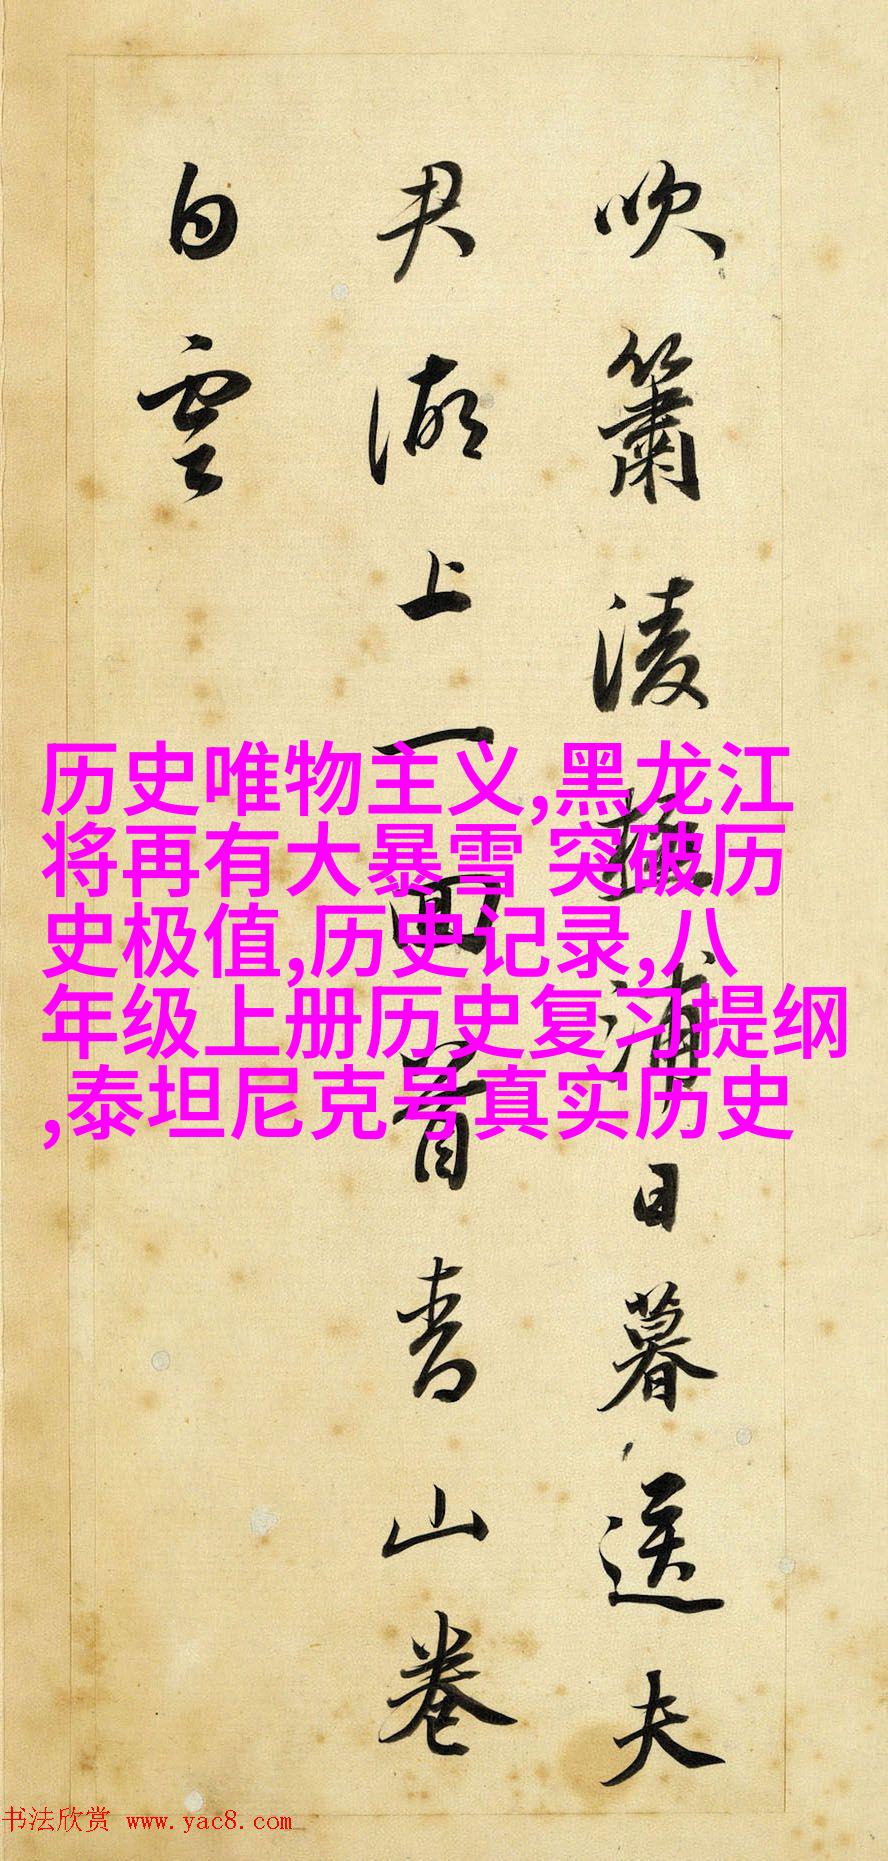 吹簫凌極浦日暮送夫
君湖上一回首青山卷
白雲
历史唯物主义,黑龙江
将再有大暴雪 突破历
史极值,历史记录,八
年级上册历史复习提纲
,泰坦尼克号真实历史
书法欣赏 www.yac8.com